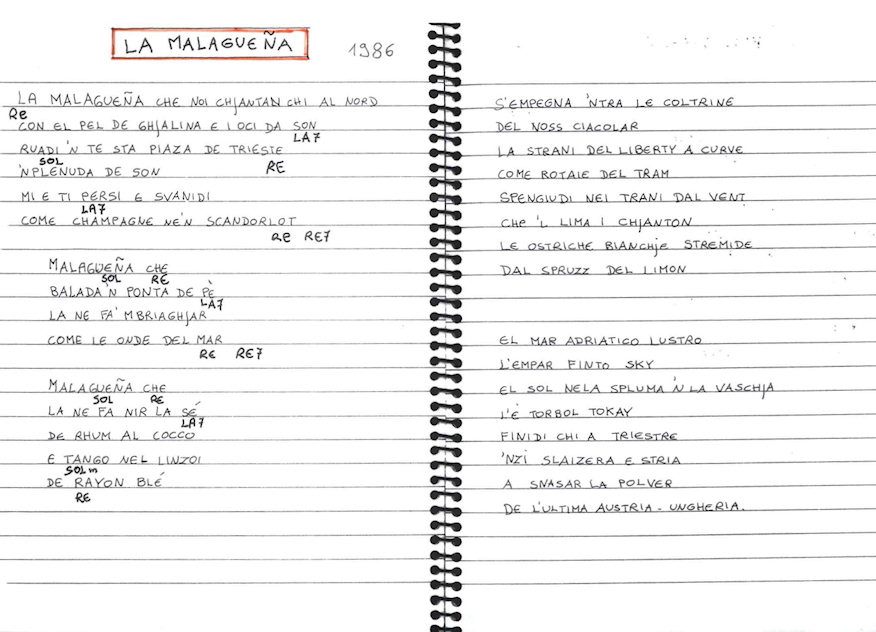 LA MALAGUEÑA 1986
LA MALAGUEÑA CHE NOI CHJANTAN CHI AL NORD
RE
CON EL PEL DE GHJALINA E I OCI DA SON
LA7
RUADI 'N TE STA PIAZA DE TRIESTE
SOL RE
'NPLENUDA DE SON
MI E TI PERSI E SVANIDI
LA7
COME CHAMPAGNE NE'N SCANDORLOT
RE RE7
MALAGUEÑA CHE
SOL RE
BALADA 'N PONTA DE PÈ
LA7
LA NE FA' MBRIAGHJAR
COME LE ONDE DEL MAR
RE RE7
MALAGUEÑA CHE
SOL RE
LA NE FA NIR LA SÉ
LA7
DE RHUM AL COCCO
E TANGO NEL LINZOI
SOLm
DE RAYON BLÉ
RE
S'EMPEGNA 'NTRA LE COLTRINE
DEL NOSS CIACOLAR
LA STRANI DEL LIBERTY A CURVE
COME ROTAIE DEL TRAM
SPENGIUDI NEI TRANI DAL VENT
CHE 'L LIMA I CHJANTON
LE OSTRICHE BIANCHJE STREMIDE
DAL SPRUZZ DEL LIMON
EL MAR ADRIATICO LUSTRO
L'EMPAR FINTO SKY
EL SOL NELA SPLUMA 'N LA VASCHJA
L'È TORBOL TOKAY
FINIDI CHI A TRIESTRE
'NZÌ SLAIZERA E STRIA
A SNASAR LA POLVER
DE L'ULTIMA AUSTRIA - UNGHERIA.